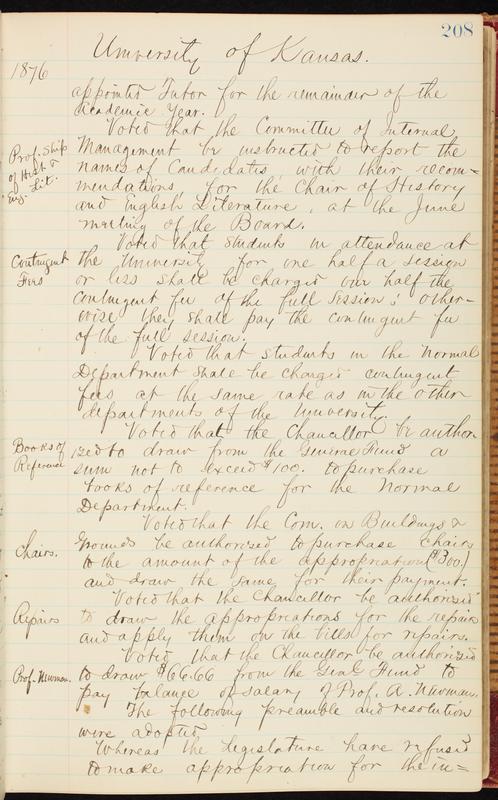 208
University of Kansas.
1876
appointed Tutor for the remainder of the
Academic Year.
Voted that the Committee of Internal
Prof. Ship
of Hist. &
Eng. Lit.
Management be instructed to report the
names of Candidates, with their recom-
mendations, for the Chair of History
and English Literature, at the June
meeting of the Board.
Voted that students in attendance at
Contingent
Fees
the University for one half a session
or less shall be charged one half the
contingent fee of the full session; other-
wise they shall pay the contingent fee
of the full session.
Voted that students in the Normal
Department shall be charged contingent
fees at the same rate as in the other
departments of the University.
Voted that the Chancellor be author
Books of
Reference
ized to draw from the General Fund a
sum not to exceed $100. to purchase
books of reference for the Normal
Department.
Voted that the Com. on Buildings &
Chairs.
Grounds be authorized to purchase chairs
to the amount of the appropriation ($300.)
and draw the same for their payment.
Voted that the Chancellor be authorized
Repairs
to draw the appropriations for the repairs
and apply them on the bills for repairs.
Voted that the Chancellor be authorized
Prof. Newman.
to draw $66.66 from the Genl Fund to
pay balance of salary of Prof. A. Newman.
The following preamble and resolution
were adopted
Whereas the legislature have refused
to make appropriation for the in=